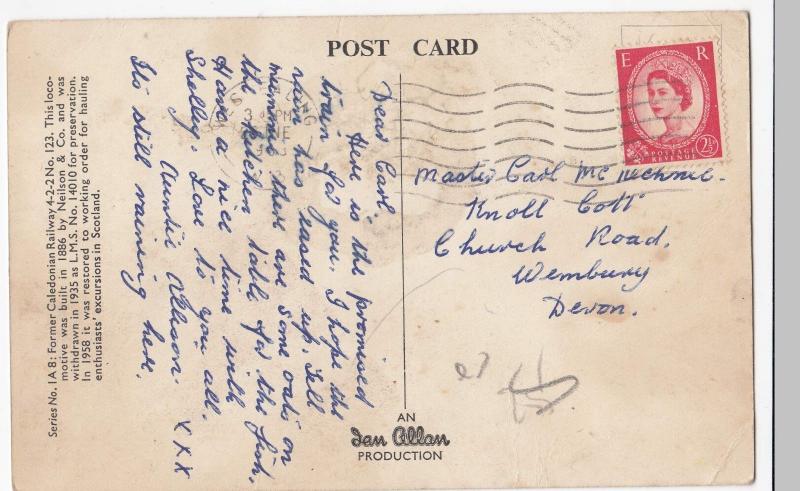 POST CARD
Series No. 1A8: Former Caledonian Railway 4-2-2 No. 123. This loco-
motive was built in 1886 by Neilson & Co. and was
withdrawn in 1935 as L.M.S. No. 14010 for preservation.
In 1958 it was restored to working order for hauling
enthusiasts' excursions in Scotland.
Dear Carl
Here is the promised
train for you. I hope the
rain has eased up. Tell
mummie there are some oats on
the kitchen table for the fish.
Have a nice time with
Shelley. Love to you all.
Auntie Allison. XXX
Its still raining here.
E R
POSTAGE
REVENUE
2½D
3 PM
Master Carl
Knoll Cott
Church Road.
Wembury
Devon.
AN
Ian Allan
PRODUCTION